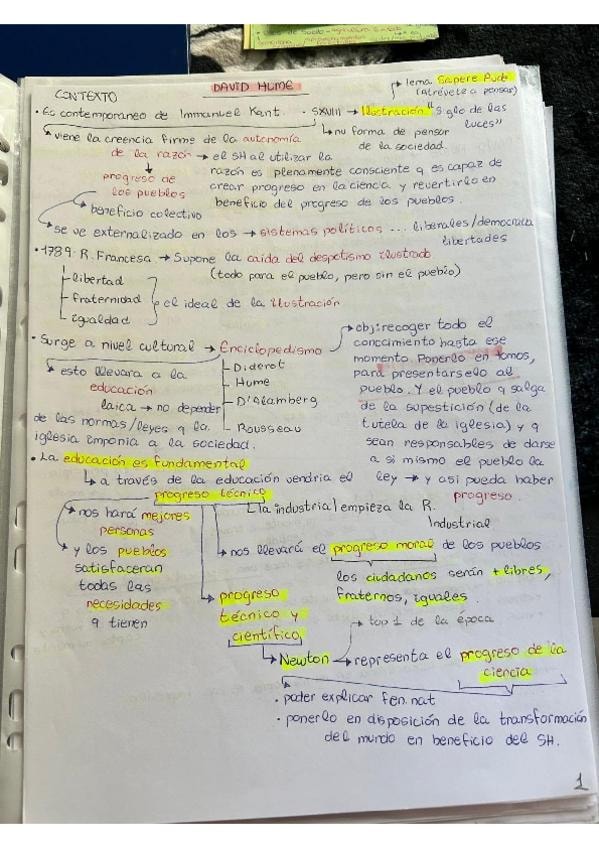 DAVID HUME
CONTEXTO
↳ lema Sapere Aude
(atrévete a pensar)
• Es contemporaneo de Immanuel Kant. • SXVIII → Ilustración "siglo de las
luces"
↳ nu forma de pensar
de la sociedad.
viene la creencia firme de la autonomía
de la razón → el SH al utilizar la
razón es plenamente consciente q es capaz de
crear progreso en la ciencia y revertirlo en
beneficio del progreso de los pueblos.
progreso de
los pueblos
beneficio colectivo
se ve externalizado en los → sistemas políticos ... liberales/democracia
libertades
• 1789 R. Francesa → Supone la caída del despotismo ilustrado
(todo para el pueblo, pero sin el pueblo)
libertad
fraternidad
igualdad
el ideal de la ilustración
• Surge a nivel cultural → Enciclopedismo
Diderot
Hume
D'Alamberg
Rousseau
esto llevara a la
educación
laica → no depender
de las normas/leyes q la
iglesia imponia a la sociedad.
→ obj: recoger todo el
conocimiento hasta ese
momento. Ponerlo en tomos,
para presentarselo al
pueblo. Y el pueblo q salga
de la supestición (de la
tutela de la iglesia) y q
sean responsables de darse
a si mismo el pueblo la
ley → y asi pueda haber
progreso.
• La educación es fundamental
↳ a través de la educación vendria el
progreso técnico
la industrial empieza la R.
Industrial
nos hará mejores
personas
y los pueblos
satisfaceran
todas las
necesidades
q tienen
nos llevará el progreso moral de los pueblos
los ciudadanos serán + libres,
fraternos, iguales.
progreso
técnico y
científico
top 1 de la época
↳ Newton → representa el progreso de la
ciencia
• poder explicar fen.nat
• ponerlo en disposición de la transformación
del mundo en beneficio del SH.
1